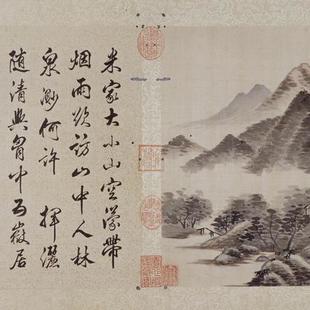 米家大小山空濛帶
烟雨欲訪山中人林
泉渺何許 揮灑
随清興胷中五嶽居